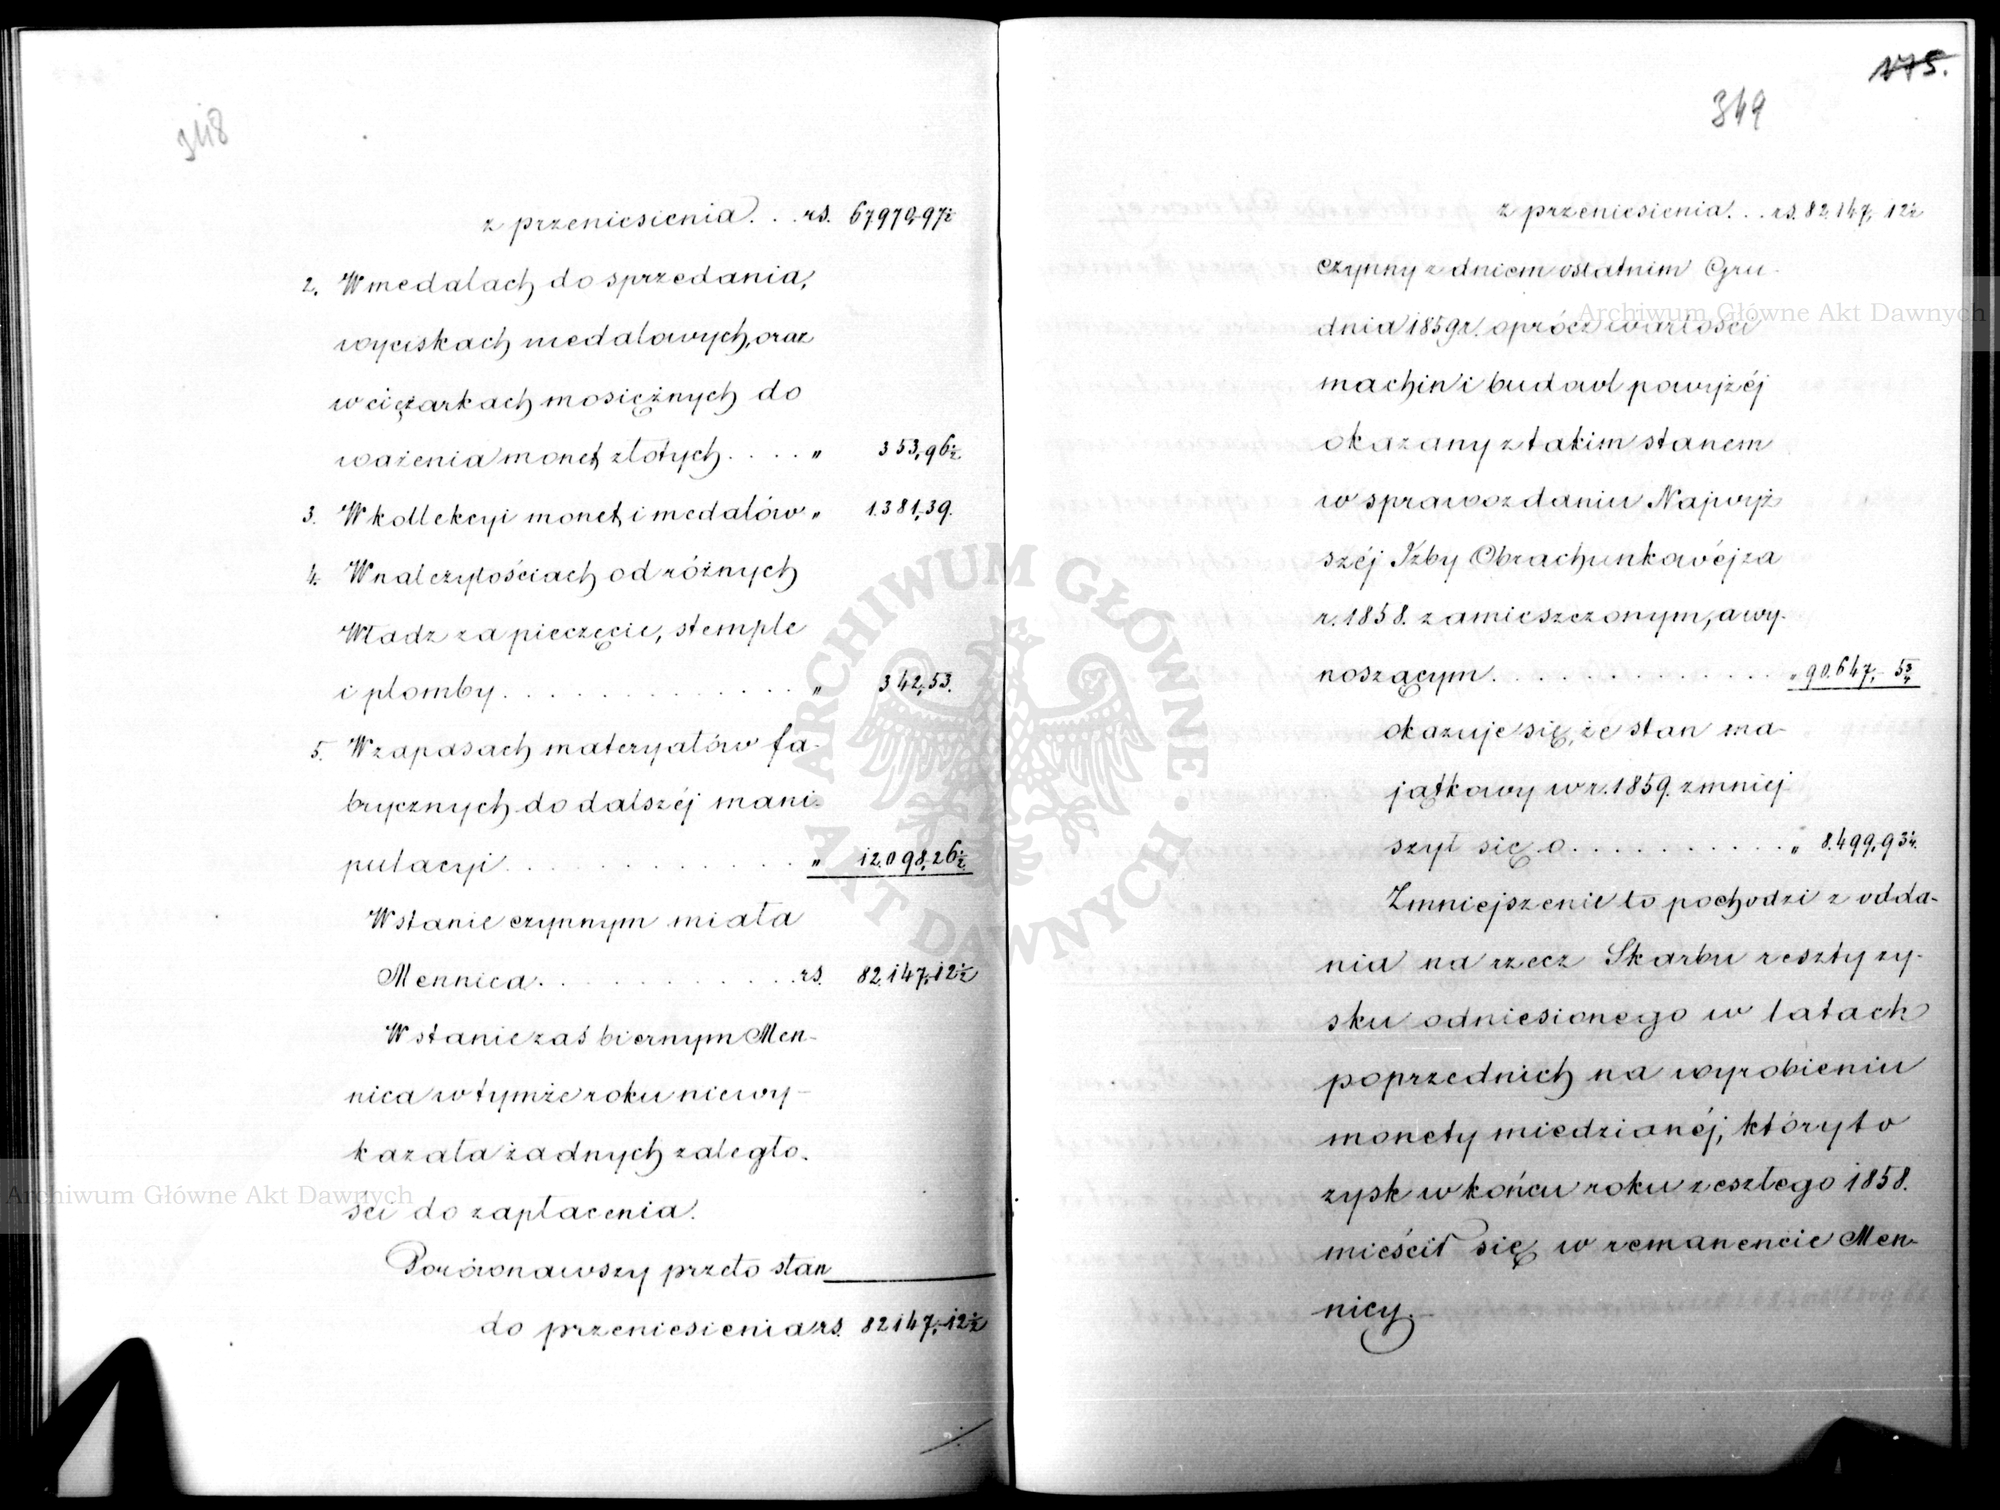 348
z przeniesienia. . . rs. 67970,97½
2. W medalach do sprzedania,
wyciskach medalowych, oraz
w ciężarkach mosiężnych do
ważenia monet złotych . . . . " 353,96½
3. W kollekcyi monet i medalów " 1.381,39.
4. W należytościach od różnych
Władz za pieczęcie, stemple
i plomby . . . . . . . . . . . . . " 342,53.
5. W zapasach materyałów fa-
brycznych do dalszéj mani-
pulacyi . . . . . . . . . . . . . " 12.098,26½
W stanie czynnym miała
Mennica . . . . . . . . . . . . rs. 82.147,12½
W stanie zaś biernym Men-
nica w tymże roku niewy-
kazała żadnych zaległo-
ści do zapłacenia.
Porównawszy przeto stan
do przeniesienia rs. 82147,-12½
175.
349
z przeniesienia. . . rs. 82.147, 12½
czynny z dniem ostatnim Gru-
dnia 1859 r. oprócz wartości
machin i budowl powyżéj
okazany z takim stanem
w sprawozdaniu Najwyż
széj Izby Obrachunkowéj za
r. 1858. zamieszczonym, a wy-
noszącym . . . . . . . . . . . . . . " 90.647,- 5¾
okazuje się, że stan ma-
jątkowy w r. 1859. zmniej
szył się o . . . . . . . . . . . " 8.499,93¼.
Zmniejszenie to pochodzi z odda-
nia na rzecz Skarbu reszty zy-
sku odniesionego w latach
poprzednich na wyrobieniu
monety miedzianéj, który to
zysk w końcu roku zeszłego 1858.
mieścił się w remanencie Men-
nicy.
Archiwum Główne Akt Dawnych
ARCHIWUM GŁÓWNE · AKT DAWNYCH ·
Archiwum Główne Akt Dawnych